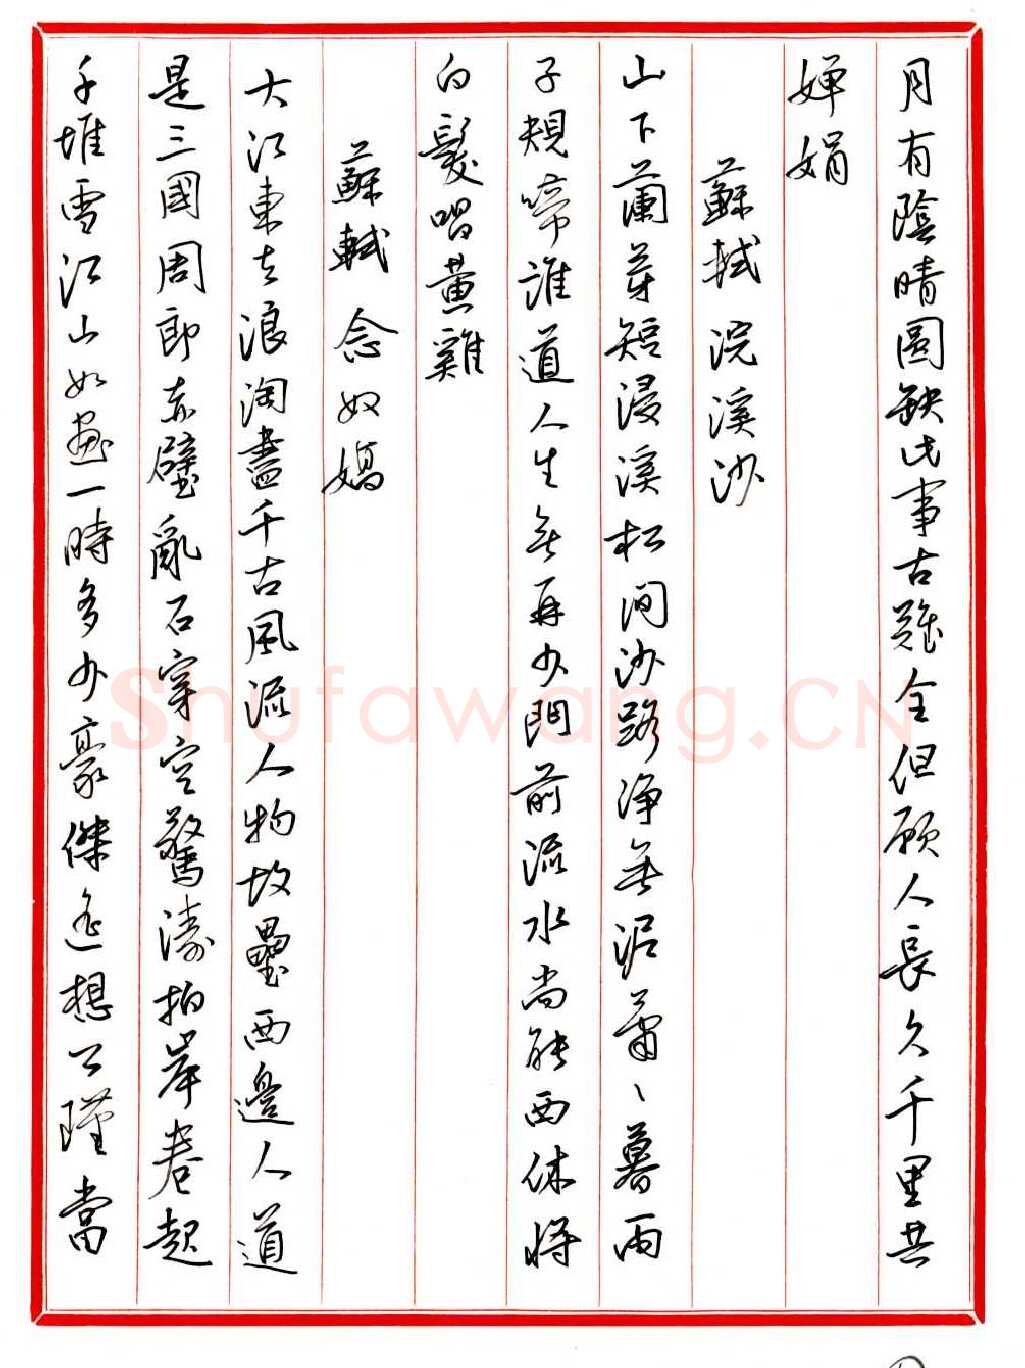 月有陰晴圓缺此事古難全但願人長久千里共
嬋娟
蘇軾 浣溪沙
山下蘭芽短浸溪松間沙路淨無泥蕭、暮雨
子規啼誰道人生無再少門前流水尚能西休將
白髮唱黃雞
蘇軾 念奴嬌
大江東去浪淘盡千古風流人物故壘西邊人道
是三國周郎赤壁亂石穿空驚濤拍岸卷起
千堆雪江山如畫一時多少豪傑遙想公瑾當
Shufawang.CN